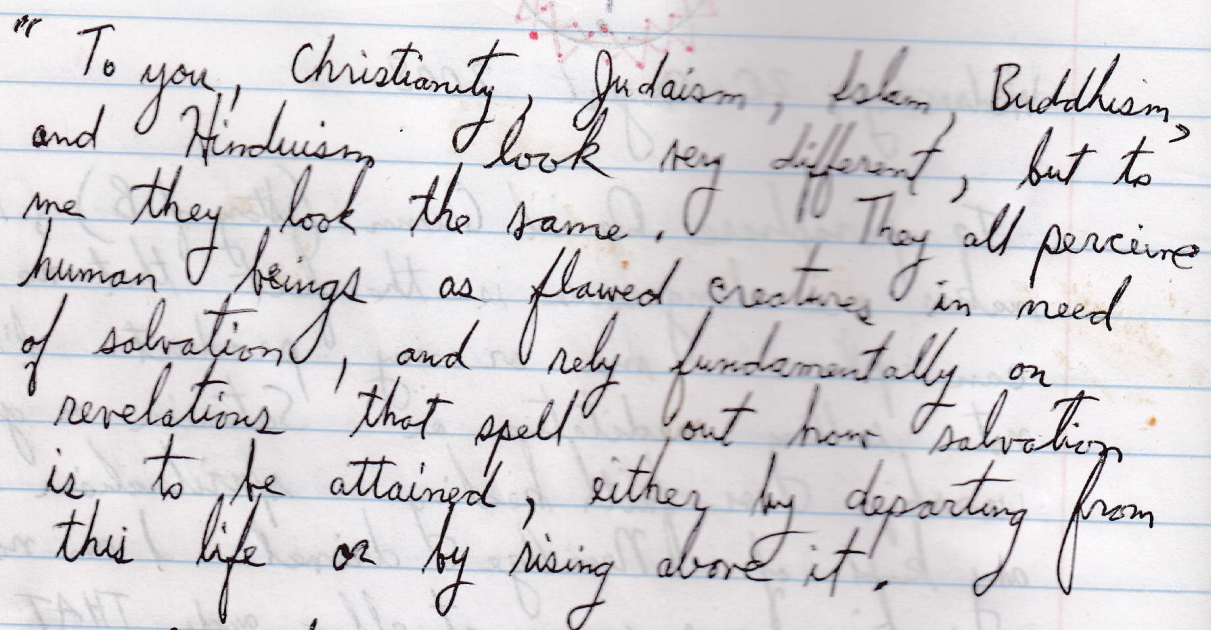 " To you, Christianity, Judaism, Islam, Buddhism,
and Hinduism look very different, but to
me they look the same. They all perceive
human beings as flawed creatures in need
of salvation, and rely fundamentally on
revelations that spell out how salvation
is to be attained, either by departing from
this life or by rising above it.